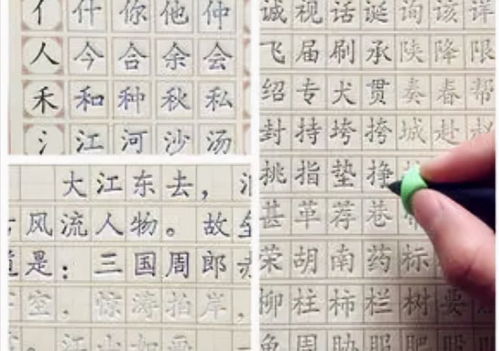 亻什你他仲
人今合余会
禾和种秋私
氵江河沙汤
大江东去，
风流人物。故
是：三国周郎
空，惊涛拍岸，
江山如画
诚视话诞询该详
飞届刷承陕降限
绍专犬贯奏春帮
封持垮挎城赴赵
桃指垫挣
甚革荐巷带
荣胡南药标
柳柱柿栏树要